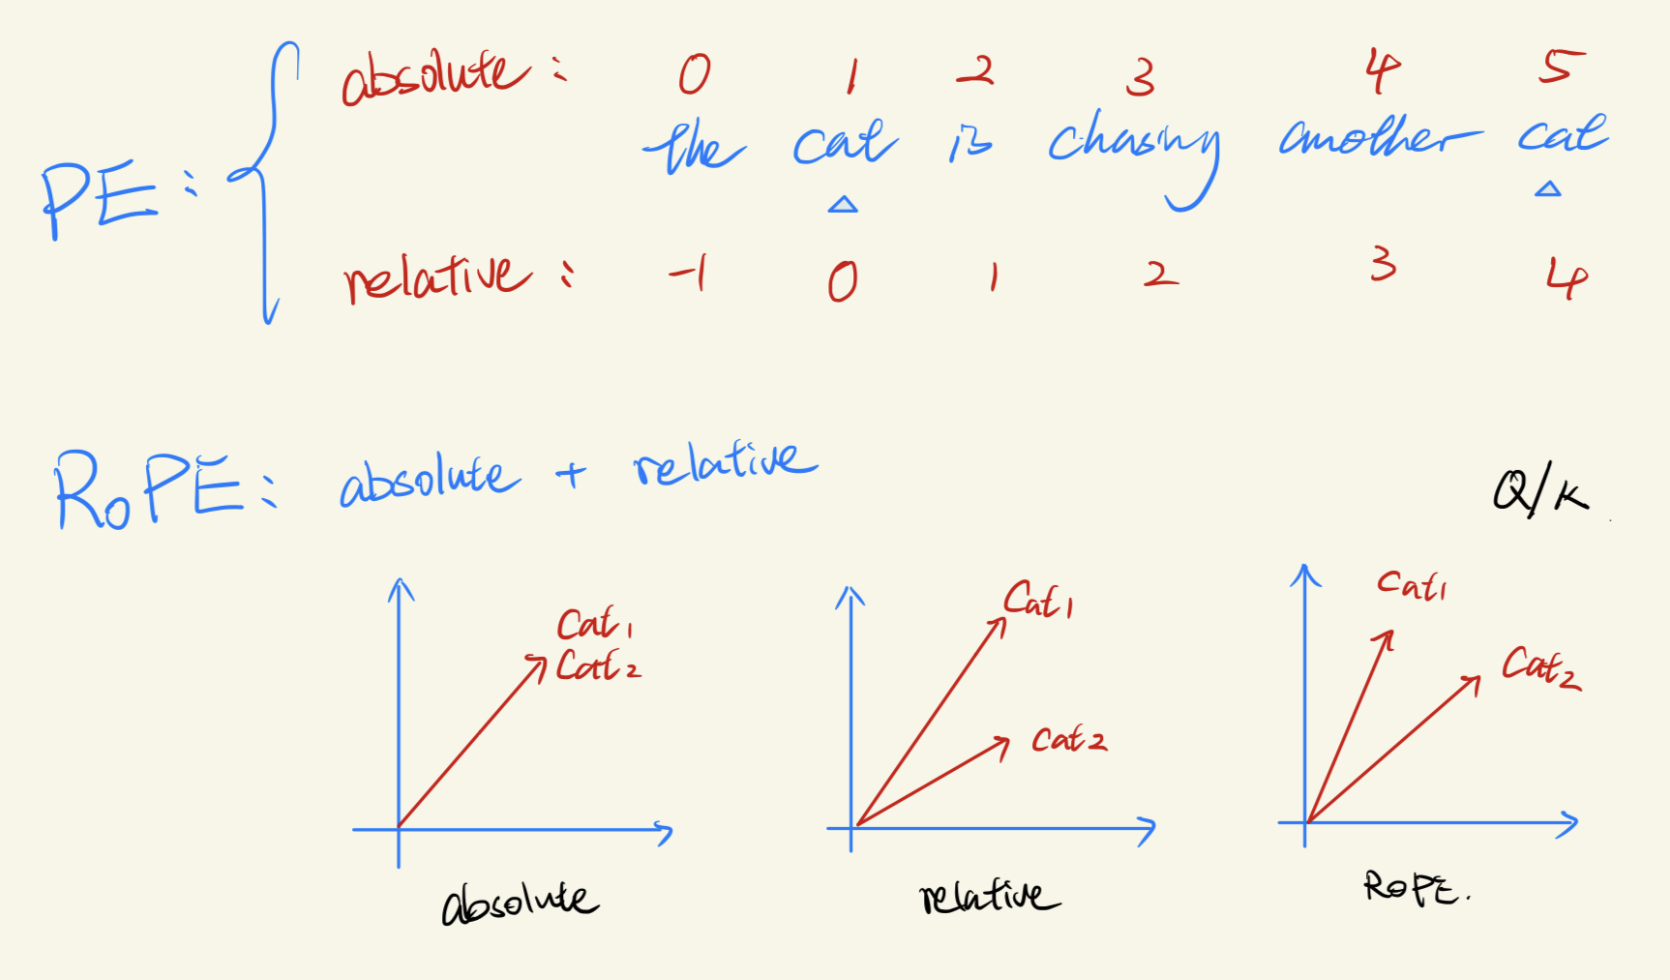 absolute: 0 1 2 3 4 5
the cat is chasing another cat
PE:
relative: -1 0 1 2 3 4
RoPE: absolute + relative
Q/K
Cat1
Cat2
absolute
Cat1
Cat2
relative
Cat1
Cat2
RoPE.